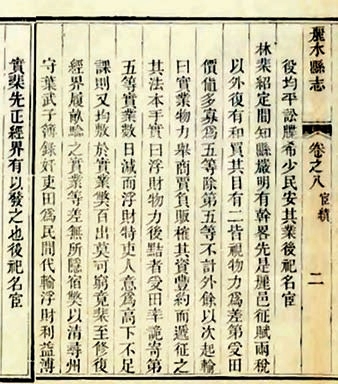 麗水縣志
卷之八 宦績
二
役均平訟牒希少民安其業後祀名宦
林棐紹定間知縣嚴明有幹畧先是麗邑征賦兩稅
以外復有和買其目有二皆視物力爲差第受田
價值多寡爲五等除第五等不計外餘以次起輸
曰實業物力舉商賈負販權其資豐約而遞征之
其法本手實曰浮財物力後點者受田幸詭寄第
五等實業數日減而浮財特吏人意爲高下不足
課則又均敷於實業獘百出莫可窮竟棐至修復
經界履畝驗之實業等差無所隱宿獘以清尋州
守葉武子簿錄奸吏田爲民間代輸浮財利益溥
實棐先正經界有以發之也後祀名宦